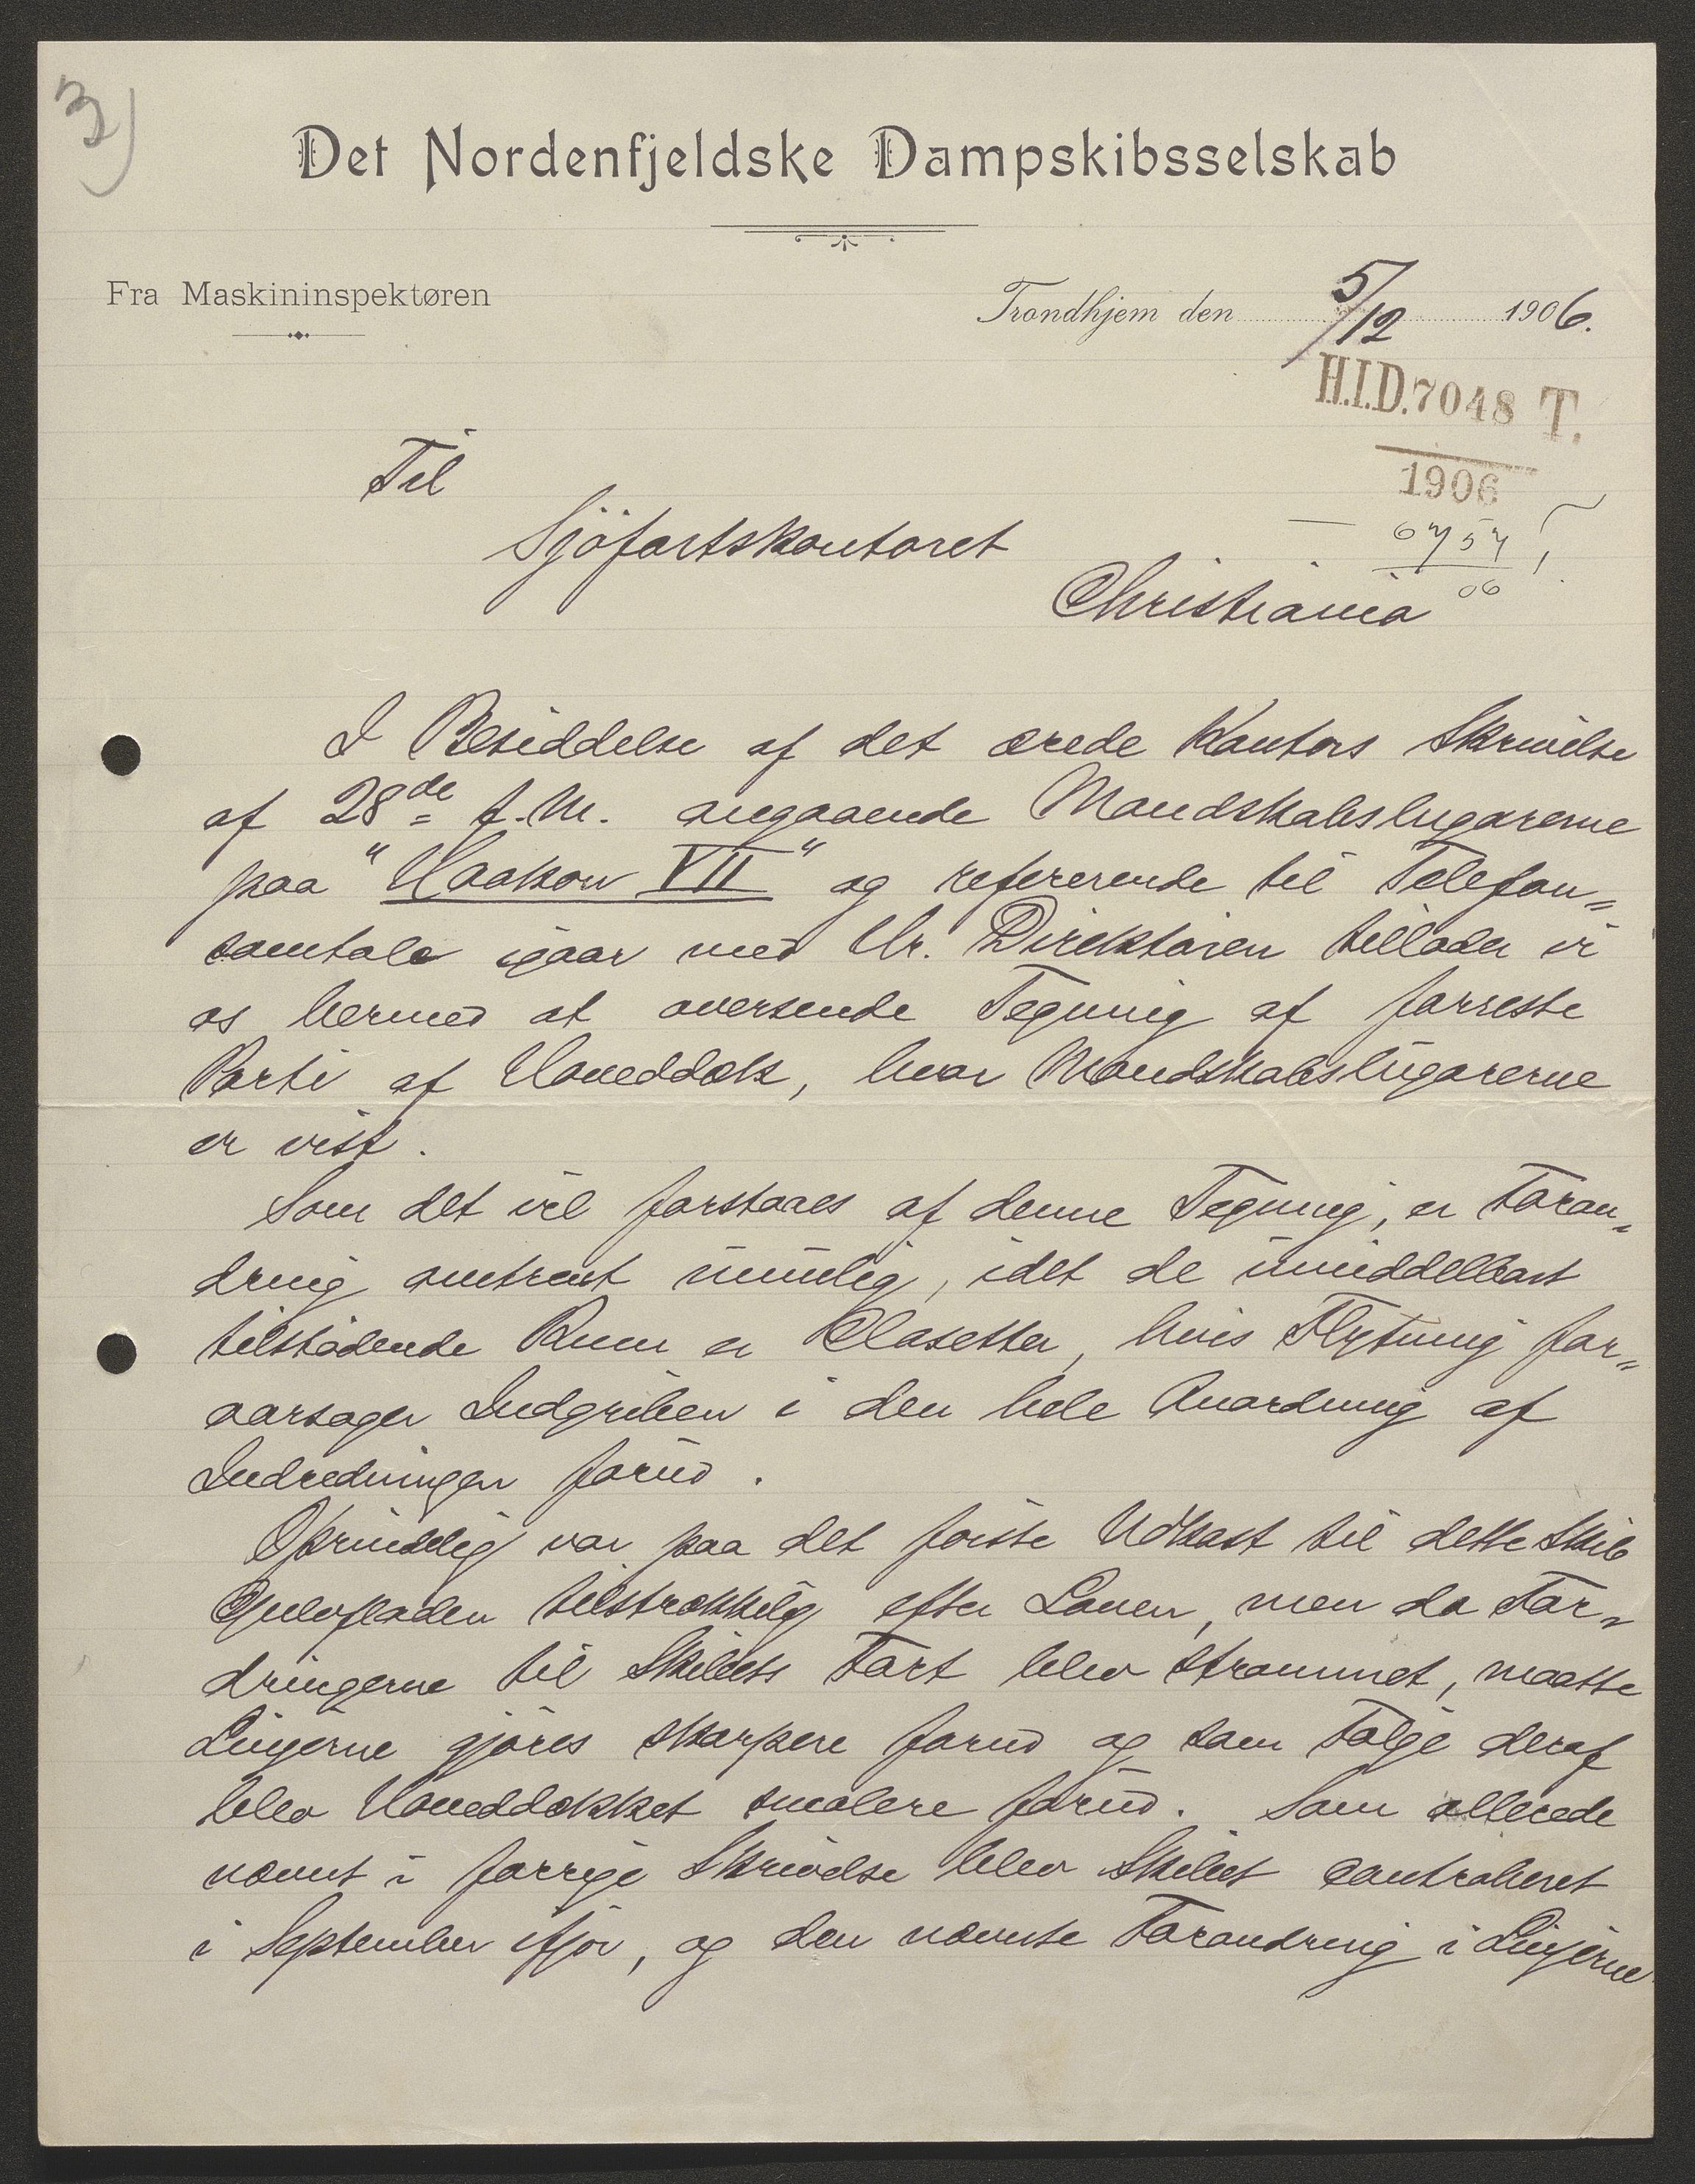 3)
Det Nordenfjeldske Dampskibsselskab
Fra Maskininspektøren
Trondhjem den 5/12 1906.
H.I.D. 7048 T.
1906
Til
Sjöfartskontoret
6757
06
Christiania
I Besiddelse af det ærede Kontors Skrivelse
af 28de f.M. angaaende Mandskabslugarerne
paa "Haakon VII" og refererende til Telefon„
samtale igaar med Hr. Direktøren tillader vi
os hermed at oversende Tegning af forreste
Parti af Hoveddæk, hvor Mandskabslugarerne
er vist.
Som det vil forstaaes af denne Tegning, er Foran„
dring omtrent umulig, idet de umiddelbart
tilstødende Rum er Klosetter, hvis Flytning for„
aarsager Indgriben i den hele Anordning af
Indredningen forud.
Oprindelig var paa det første Udkast til dette Skib
Gulvfladen tilstrækkelig efter Loven, men da For„
dringerne til Skibets Fart blev strammet, maatte
Linjerne gjøres skarpere forud og som Følge deraf
blev Hoveddækket smalere forud. Som allerede
nævnt i forrige Skrivelse blev Skibet contraheret
i September ifjor, og den nævnte Forandring i Linjerne